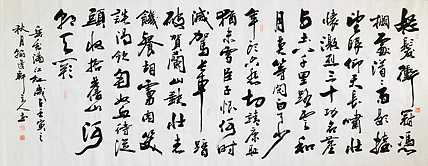 怒髮衝冠憑
欄處瀟雨歇抬
望眼仰天長嘯壯
懷激烈三十功名塵
与土八千里路雲和
月莫等閑白了少
年頭空悲切靖康恥
猶未雪臣子恨何時
滅駕長車踏
破賀蘭山缺壯志
飢餐胡虜肉笑
談渴飲匈奴血待從
頭收拾舊山河
朝天闕
岳飛滿江紅歲在壬寅之
秋月書